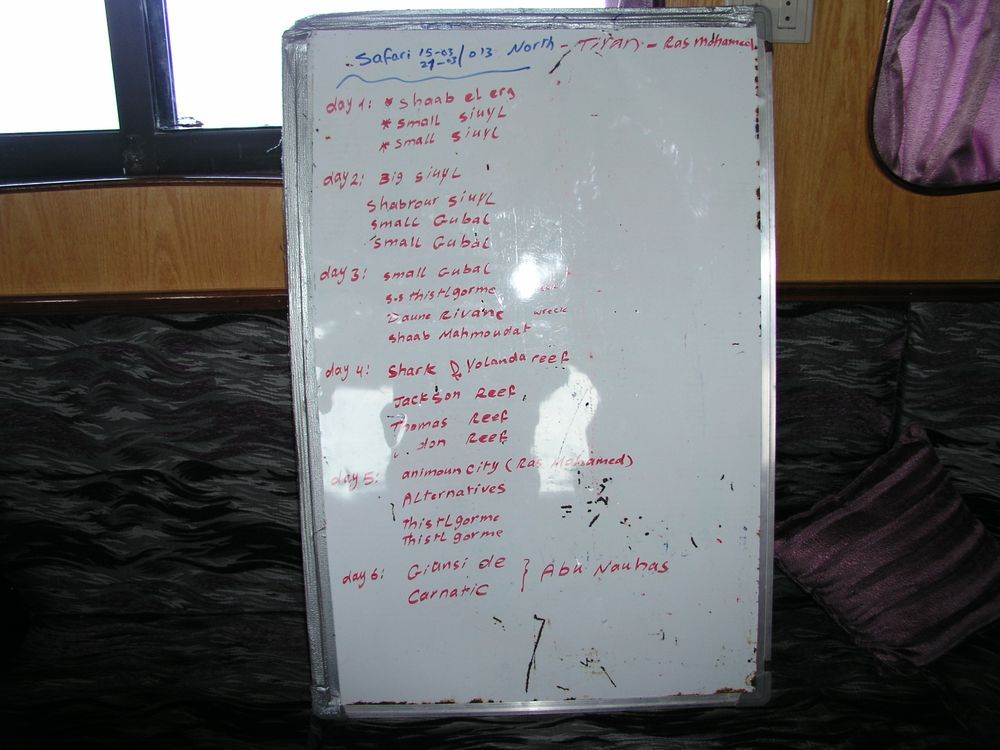 Safari 15-03 / 013 North - Tiran - Ras Mohamed
21-03
day 1: * Shaab el erg
* small siuyL
* small siuyL
day 2: Big siuyL
Shabrour siuyL
small Gubal
small Gubal
day 3: small Gubal
s.s thistlgorme
Daune Rivane wreck
Shaab Mahmoudat
day 4: Shark & Yolanda reef
Jackson Reef
Thomas Reef
don Reef
day 5: animoun City (Ras Mohamed)
Alternatives
thistlgorme
thistlgorme
day 6: Giansi de } Abu Nauhas
Carnatic